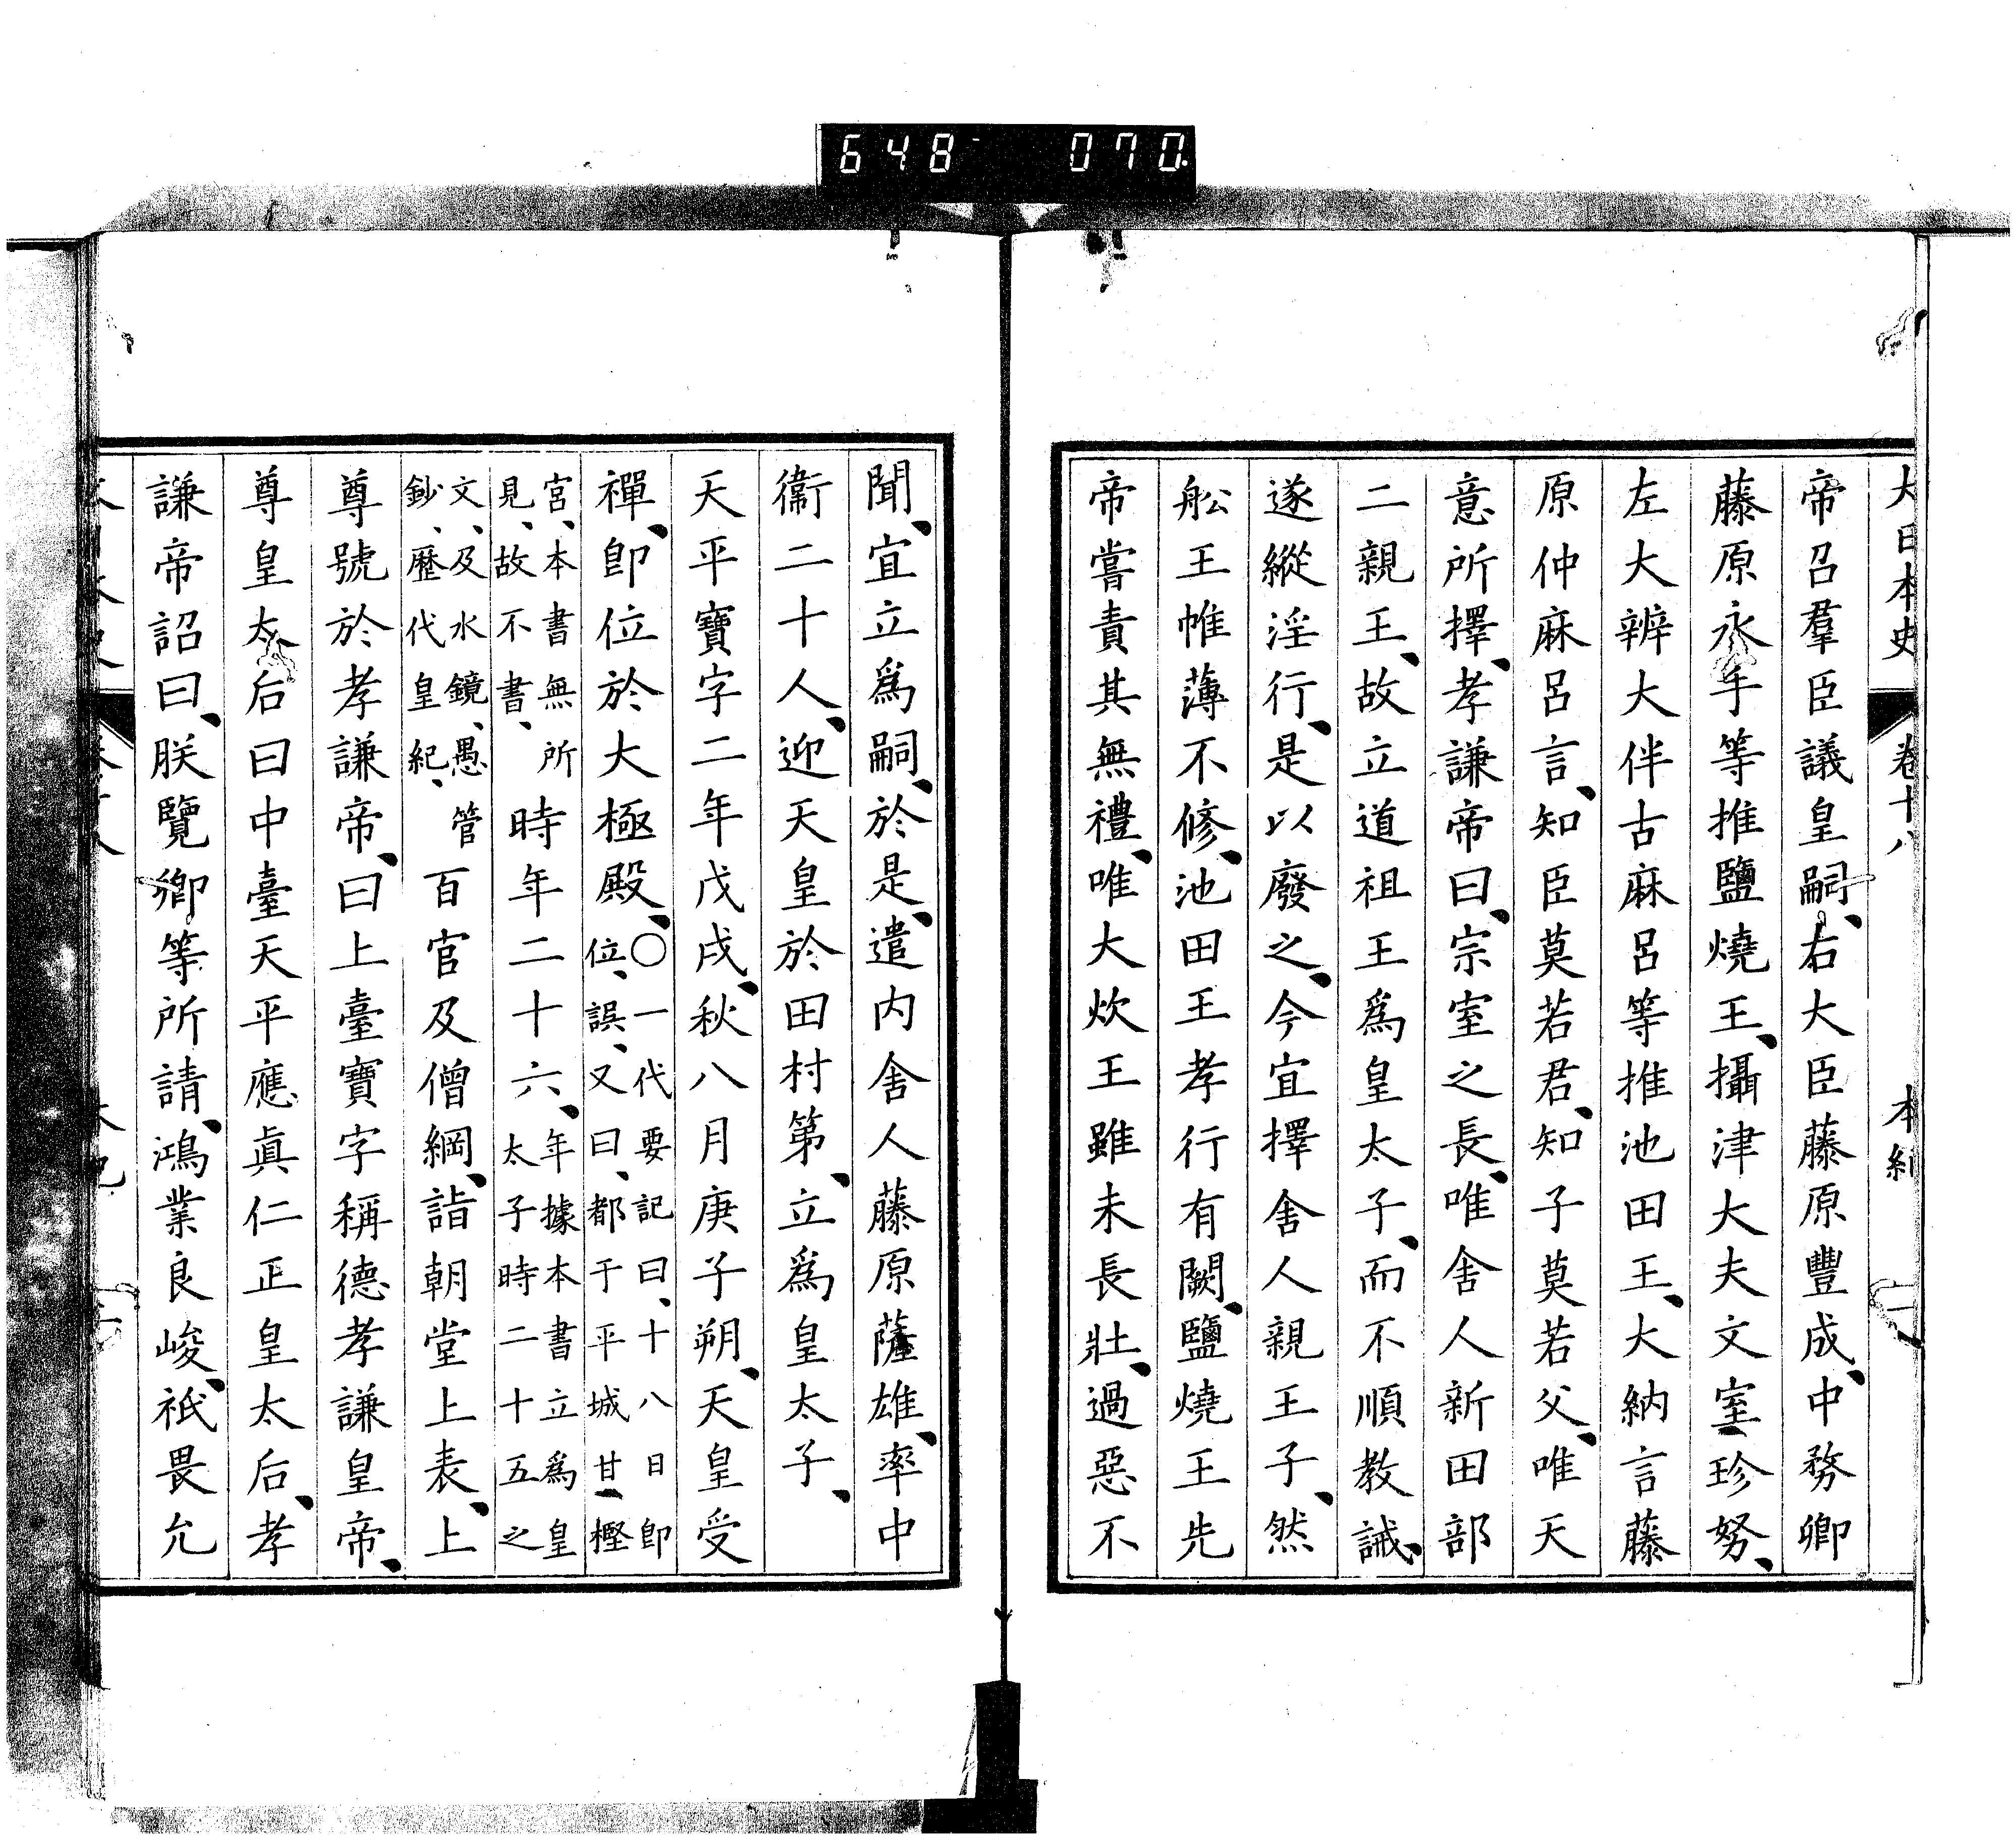 648 070
大日本史 卷十八 本紀 二
帝召羣臣議皇嗣、右大臣藤原豐成、中務卿
藤原永手等推鹽燒王、攝津大夫文室珍努、
左大辨大伴古麻呂等推池田王、大納言藤
原仲麻呂言、知臣莫若君、知子莫若父、唯天
意所擇、孝謙帝曰、宗室之長、唯舍人新田部
二親王、故立道祖王爲皇太子、而不順教誡、
遂縱淫行、是以廢之、今宜擇舍人親王子、然
舩王帷薄不修、池田王孝行有闕、鹽燒王先
帝嘗責其無禮、唯大炊王雖未長壯、過惡不
聞、宜立爲嗣、於是、遣内舍人藤原薩雄、率中
衞二十人、迎天皇於田村第、立爲皇太子、
天平寶字二年戊戌、秋八月庚子朔、天皇受
禪、卽位於大極殿、〇一代要記曰、十八日卽
位、誤、又曰、都于平城甘樫
宮、本書無所
見、故不書、時年二十六、年據本書立爲皇
太子時二十五之
文、及水鏡、愚管
鈔、歷代皇紀、百官及僧綱、詣朝堂上表、上
尊號於孝謙帝、曰上臺寶字稱德孝謙皇帝、
尊皇太后曰中臺天平應眞仁正皇太后、孝
謙帝詔曰、朕覽卿等所請、鴻業良峻、祇畏允